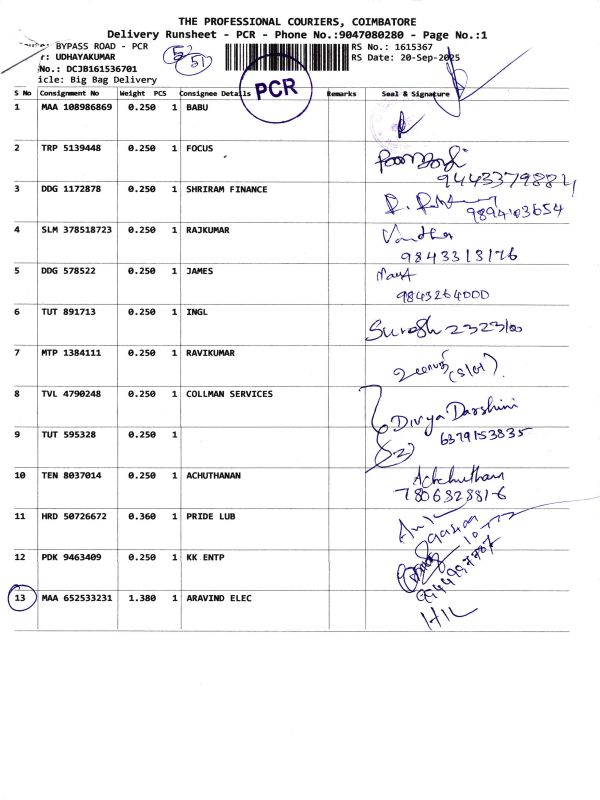 THE PROFESSIONAL COURIERS, COIMBATORE
Delivery Runsheet - PCR - Phone No.:9047080280 - Page No.:1
BYPASS ROAD - PCR
RS No.: 1615367
r: UDHAYAKUMAR
51
RS Date: 20-Sep-2025
No.: DCJB161536701
icle: Big Bag Delivery
PCR
S No Consignment No Weight PCS Consignee Details Remarks Seal & Signature
1 MAA 108986869 0.250 1 BABU
2 TRP 5139448 0.250 1 FOCUS
9443379884
3 DDG 1172878 0.250 1 SHRIRAM FINANCE
9894103654
4 SLM 378518723 0.250 1 RAJKUMAR Vandha
9843313176
5 DDG 578522 0.250 1 JAMES
9843264000
6 TUT 891713 0.250 1 INGL
Suresh 232310
7 MTP 1384111 0.250 1 RAVIKUMAR
8 TVL 4790248 0.250 1 COLLMAN SERVICES
Divya Darshini
9 TUT 595328 0.250 1 6379153835
10 TEN 8037014 0.250 1 ACHUTHANAN Achchuthan
7806828816
11 HRD 50726672 0.360 1 PRIDE LUB
12 PDK 9463409 0.250 1 KK ENTP
13 MAA 652533231 1.380 1 ARAVIND ELEC